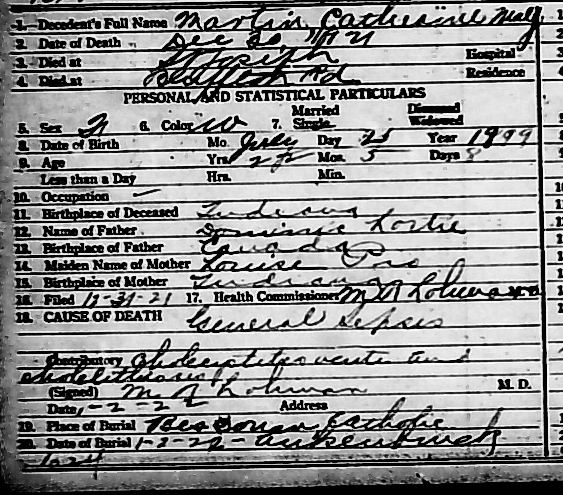 1. Decedent's Full Name Martin Catherine May
2. Date of Death Dec 30 1921
3. Died at St Joseph Hospital
4. Died at Rd Residence
PERSONAL AND STATISTICAL PARTICULARS
5. Sex F 6. Color W 7. Married Single Divorced Widowed
8. Date of Birth Mo. July Day 25 Year 1899
9. Age Yrs. 22 Mos. 5 Days
Less than a Day Hrs. Min.
10. Occupation
11. Birthplace of Deceased Indiana
12. Name of Father Dominic Lortie
13. Birthplace of Father Canada
14. Maiden Name of Mother Louise
15. Birthplace of Mother Indiana
16. Filed 12-31-21 17. Health Commissioner M A Lohman M.D.
18. CAUSE OF DEATH General Sepsis
Contributory Cholecystitis acute and
cholelithiasis
(Signed) M A Lohman M. D.
Date, 1-2-22 Address
19. Place of Burial Besancon Catholic
20. Date of Burial 1-2-22-